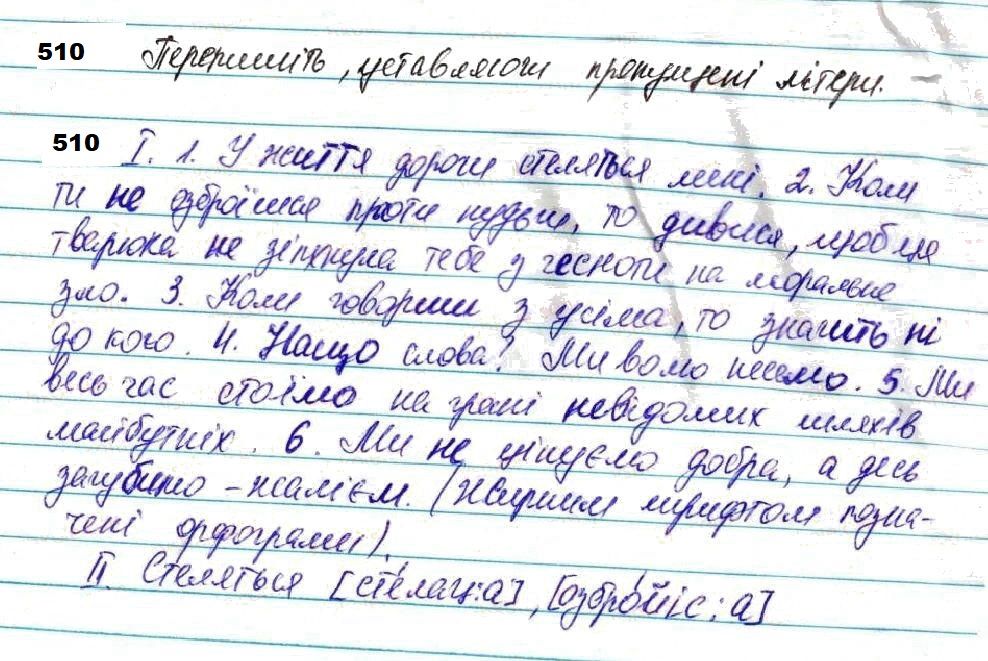 510 Перепишіть, уставляючи пропущені літери.
510 I. 1. У життя дороги стеляться мені. 2. Коли
ти не озброїшся проти нудьги, то дивися, щоб ця
тварюка не зіпхнула тебе з чесноти на моральне
зло. 3. Коли говориш з усіма, то значить ні
до кого. 4. Нащо слова? Ми несемо. 5. Ми
весь час стоїмо на грані невідомих шляхів
майбутніх. 6. Ми не цінуємо добра, а десь
загубимо – жалієм. (Жирним шрифтом позна-
чені орфограми).
II. Стеляться [сте́лац:а], [озбро́йіс:а]